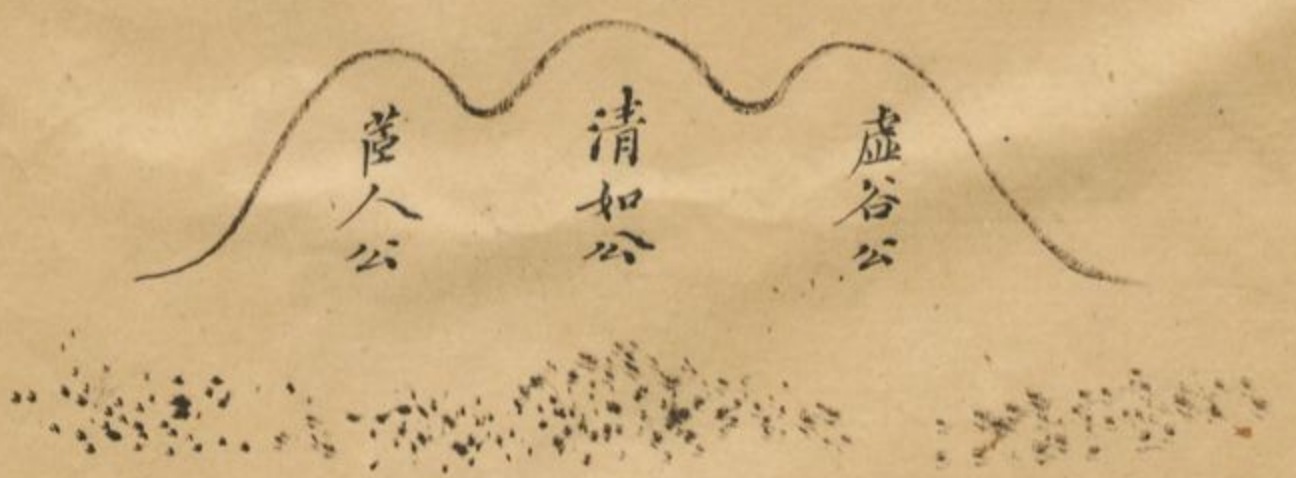 虛谷公
清如公
人公